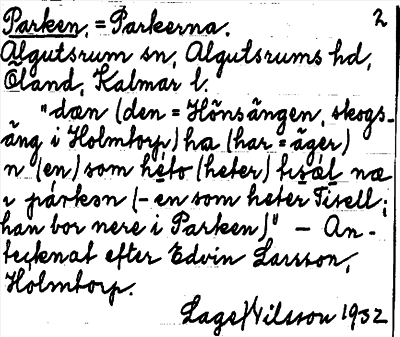 Parken, = Parkerna. 2
Algutsrum sn, Algutsrums hd,
Öland, Kalmar l.
"dæn (den = Hönsängen, skogs-
äng i Holmtorp) ha (har = äger)
n (en) som héto (heter) næ
ɪ párkən (- en som heter Tisell;
han bor nere i Parken)" - An-
tecknat efter Edvin Larsson,
Holmtorp.
Lage Nilsson 1932